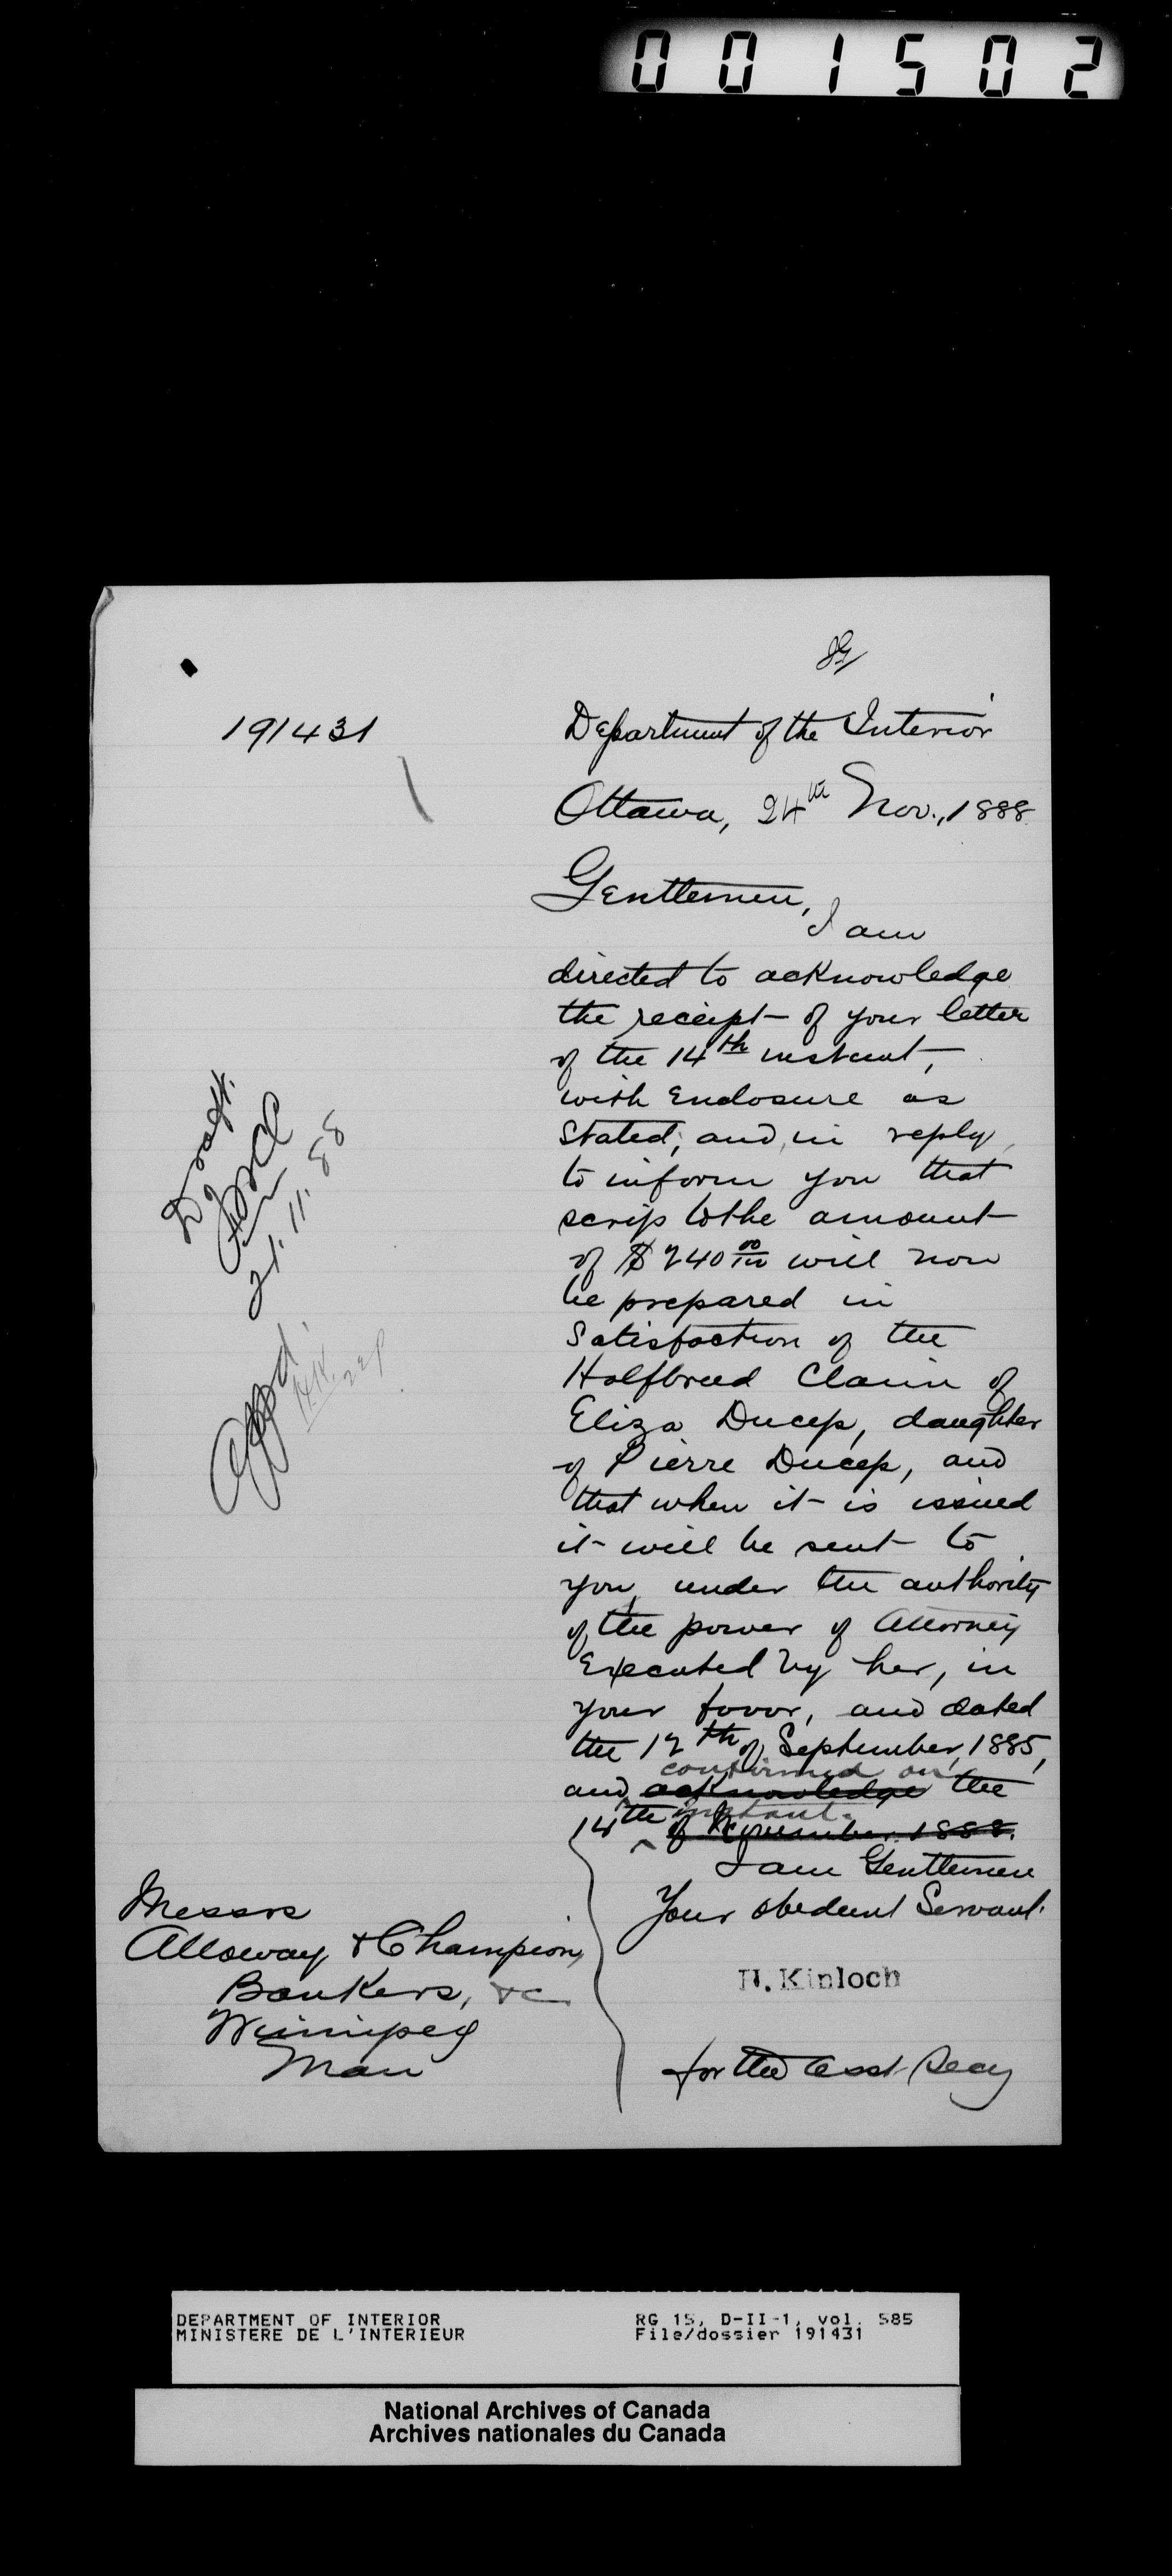 001502
191431
Department of the Interior
Ottawa, 24th Nov., 1888
Gentlemen,
I am
directed to acknowledge
the receipt of your letter
of the 14th instant,
with Enclosure as
Stated, and, in reply,
to inform you that
scrip to the amount
of $240 00/100 will now
be prepared in
Satisfaction of the
Halfbreed Claim of
Eliza Ducep, daughter
of Pierre Ducep, and
that when it is issued
it will be sent to
you, under the authority
of the power of Attorney
Executed by her, in
your favor, and dated
the 12th of September, 1885,
confirmed on
and acknowledge the
instant.
14th of November 1888.
I am Gentlemen
Your obedient Servant.
H. Kinloch
for the Asst Secy
Draft.
21.11.88
Appd.
Messrs
Alloway & Champion,
Bankers, &c
Winnipeg
Man
DEPARTMENT OF INTERIOR
MINISTERE DE L'INTERIEUR
RG 15, D-II-1, vol. 585
File/dossier 191431
National Archives of Canada
Archives nationales du Canada